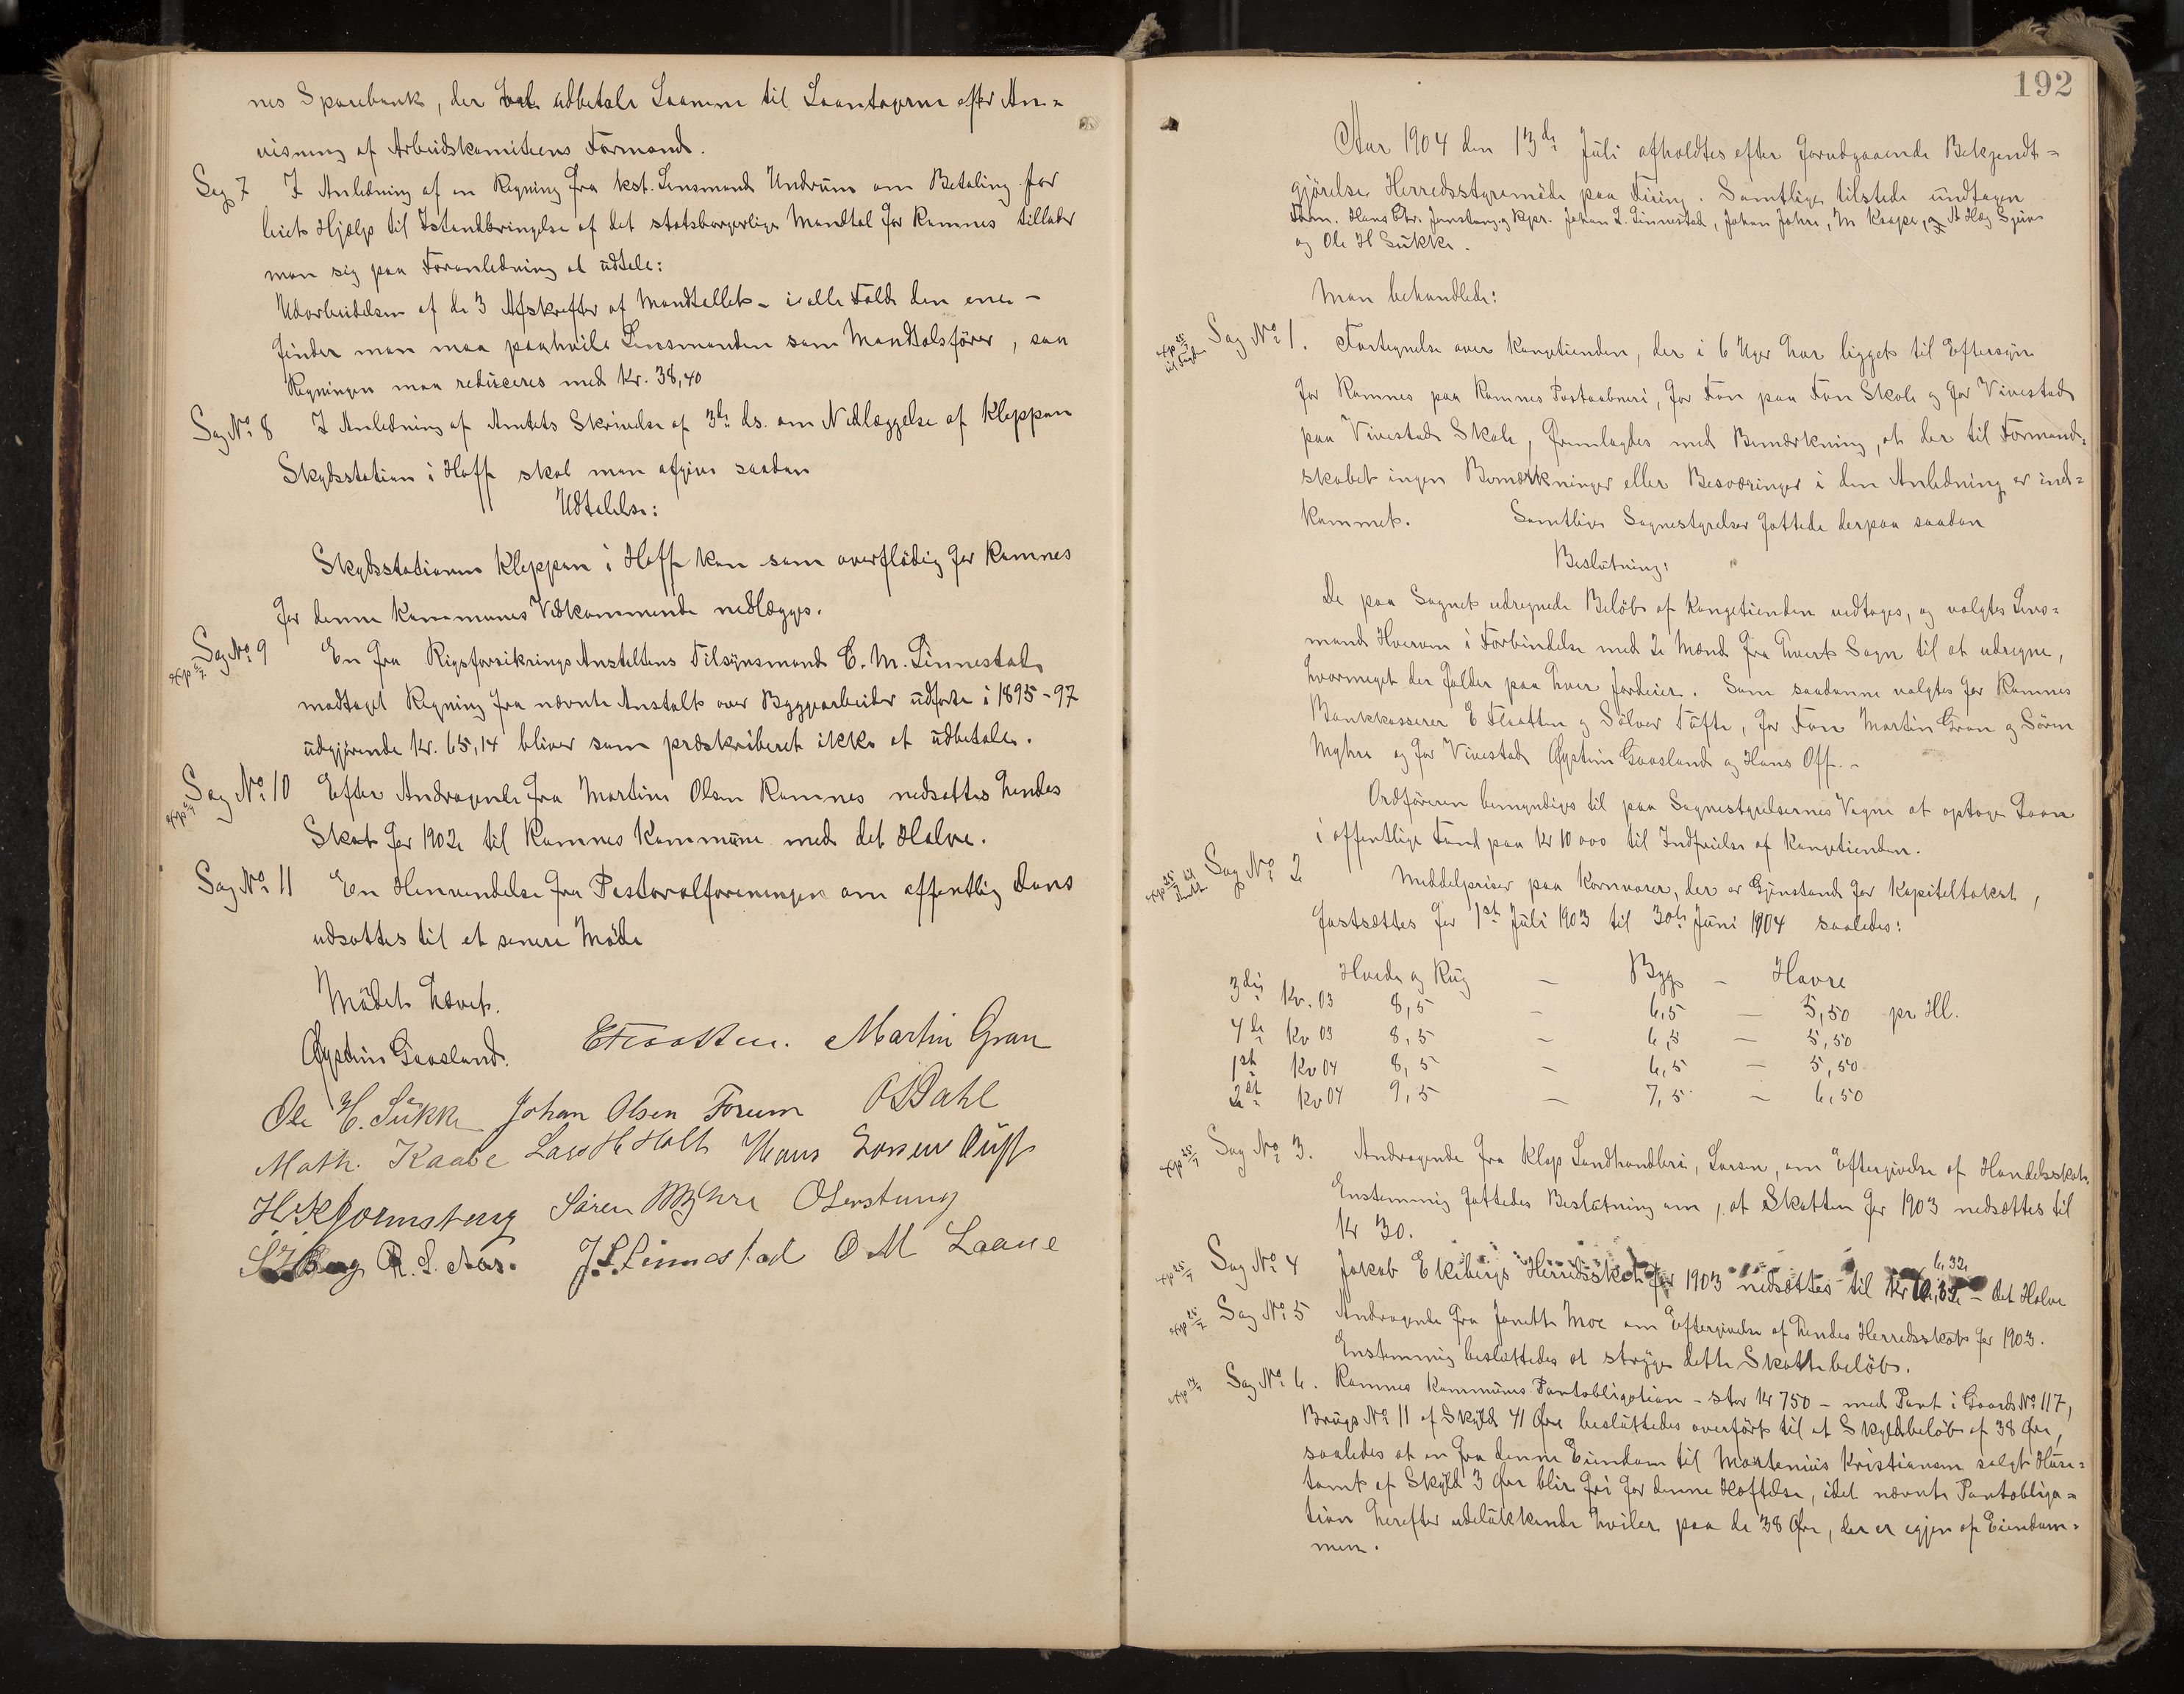 nes Sparebank, der udbetale Laanene til Laantagerne efter An=
visning af Arbeidskomiteens Formand.
Sag 7 I Anledning af en Regning fra kst. Lensmand Undrum om Betaling for
leiet Hjælp til Istandbringelse af det statsborgerlige Mandtal for Ramnes tillader
man sig paa Foranledning at udtale:
Udarbeidelsen af de 3 Afskrifter af Mandtallet – i alle Fald den ene –
finder man maa paahvile Lensmanden som Mandtalsfører, saa
Regningen maa reduceres med Kr. 38,40
Sag No. 8 I Anledning af Amtets Skrivelse af 3de ds. om Nedlæggelse af Kleppan
Skydsstation i Hoff skal man afgive saadan
Udtalelse:
Skydsstationen Kleppan i Hoff kan som overflødig for Ramnes
for denne Kommunes Vedkommende nedlægges.
Sag No. 9 En fra Rigsforsikrings Anstaltens Tilsynsmand C. M. Linnestad
modtaget Regning fra nævnte Anstalt over Byggearbeider udførte i 1895-97
udgjørende Kr. 65,14 bliver som præskriberet ikke at udbetale.
Sag No. 10 Efter Andragende fra Martine Olsen Ramnes nedsattes hendes
Skat for 1902 til Ramnes Kommune med det Halve.
Sag No. 11 En Henvendelse fra Pastoralforeningen om offentlig Dans
udsattes til et senere Møde
Mødet hævet.
Øystein Gaasland. E Fraatten. Martin Gran
Ole H. Sukke Johan Olsen Forum O Dahl
Math. Kaabe Lars H Holt Hans Larsen
H. K. Jørnstang Søren Myhre O Lerstang
S. J. Berg R. S. Aas. J. L. Linnestad O M Laane
192
Aar 1904 den 13de Juli afholdtes efter forudgaaende Bekjendt=
gjørelse Herredsstyremøde paa Firing. Samtlige tilstede undtagen
Form. Hans Chr. Jønstang og Repr. Johan L. Linnestad, Johan Johre, M Kaape,
og Ole H Sukke.
Man behandlede:
Sag No. 1. Fortegnelse over Kongetienden, der i 6 Uger har ligget til Eftersyn
for Ramnes paa Ramnes Postaabneri, for Fon paa Fon Skole og for Vivestad
paa Vivestad Skole, fremlagdes med Bemærkning, at der til Formand=
skabet ingen Bemærkninger eller Besværinger i den Anledning er ind=
kommet. Samtlige Sognestyrelser fattede derpaa saadan
Beslutning:
De paa Sognet udregnede Beløb af Kongetienden vedtages, og valgtes Lens=
mand Hvarum i Forbindelse med 2 Mænd fra hvert Sogn til at udregne,
hvormeget der falder paa hver Jordeier. Som saadanne valgtes for Ramnes
Bankkasserer E Fraatten og Sølver Tufte, for Fon Martin Gran og Søren
Myhre og for Vivestad Øystein Gaasland og Hans Off. –
Ordføreren bemyndiges til paa Sognestyrelsernes Vegne at optage Laan
i offentlige Fond paa Kr 10 000 til Indfrielse af Kongetienden.
Sag No. 2 Middelpriser paa Kornvarer, der er Gjenstand for Kapiteltakst,
fastsættes for 1st Juli 1903 til 30te Juni 1904 saaledes:
Hvede og Rug – Byg – Havre
3die Kv. 03 8,5 – 6,5 – 5,50 pr Hl.
4de Kv 03 8,5 – 6,5 – 5,50
1ste Kv 04 8,5 – 6,5 – 5,50
2det Kv 04 9,5 – 7,5 – 6,50
Exp 25/7 Sag No. 3. Andragende fra Klop Landhandleri, Larsen, om Eftergivelse af Handelsskat.
Enstemmig fattedes Beslutning om, at Skatten for 1903 nedsættes til
Kr 30.
Exp 25/7 Sag No. 4 Jakob Ekebergs Herredsskat for 1903 nedsættes til Kr 6,32 – det Halve
Exp 25/7 Sag No. 5 Andragende fra Janette Moe om Eftergivelse af hendes Herredsskat for 1903.
Enstemmig besluttedes at stryge dette Skattebeløb.
Exp 14/7 Sag No. 6. Ramnes Kommunes Pantobligation – stor Kr 750 – med Pant i Gaards No 117,
Brugs No 11 af Skyld 41 Øre besluttedes overført til et Skyldbeløb af 38 Øre,
saaledes at en fra denne Eiendom til Martenius Kristiansen solgt Huse=
tomt af Skyld 3 Øre blir fri for denne Hæftelse, idet nævnte Pantobliga=
tion herefter udelukkende hviler paa de 38 Øre, der er igjen af Eiendom=
men.